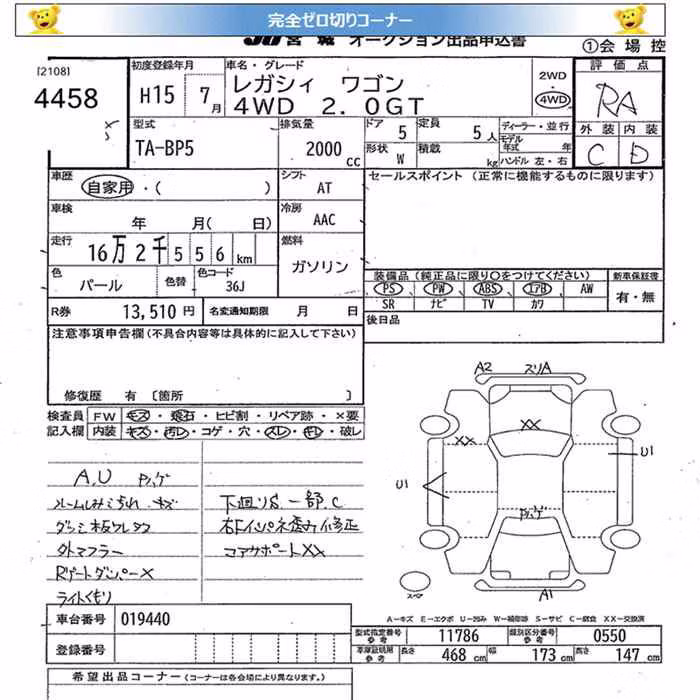 完全ゼロ切りコーナー
JU 宮城 オークション出品申込書
①会場控
[2108]
4458
初度登録年月
H15 7月
車名・グレード
レガシィ ワゴン
4WD 2.0GT
2WD
4WD
評価点
RA
型式
TA-BP5
排気量
2000 cc
ドア 5
定員 5人
ディーラー・並行
形状 W
積載 kg
モデル年式 年
ハンドル 左・右
外装 内装
C D
車歴
自家用・( )
シフト
AT
セールスポイント (正常に機能するものに限ります)
車検
年 月( 日)
冷房
AAC
走行
16万2千556km
燃料
ガソリン
色
パール
色替
色コード
36J
装備品(純正品に限り○をつけてください)
新車保証書
PS PW ABS エアB AW
有・無
SR ナビ TV カワ
R券 13,510 円
名変通知期限 月 日
後日品
注意事項申告欄(不具合内容等は具体的に記入して下さい)
修復歴 有 〔箇所 〕
検査員 FW キズ・飛石・ヒビ割・リペア跡・×要
記入欄 内装 キズ・汚レ・コゲ・穴・スレ・キレ・破レ
A2 スリA
XX
XX
U1
U1
Pハゲ
A1
スペア
A,U Pハゲ
ルームしみよごれ キズ
ダッシュ板ワレタク
外マフラー
Rゲートダンパー×
ライトくもり
下廻りS 一部C
右Fインパネ歪み修正
コアサポートXX
A-キズ E-エクボ U-凹み W-補修跡 S-サビ C-腐食 XX-交換済
車台番号 019440
登録番号
型式指定番号 参考 11786
類別区分番号 参考 0550
車庫証明用 参考 長さ 468 cm 幅 173 cm 高さ 147 cm
希望出品コーナー (コーナーは各会場により異なります。)